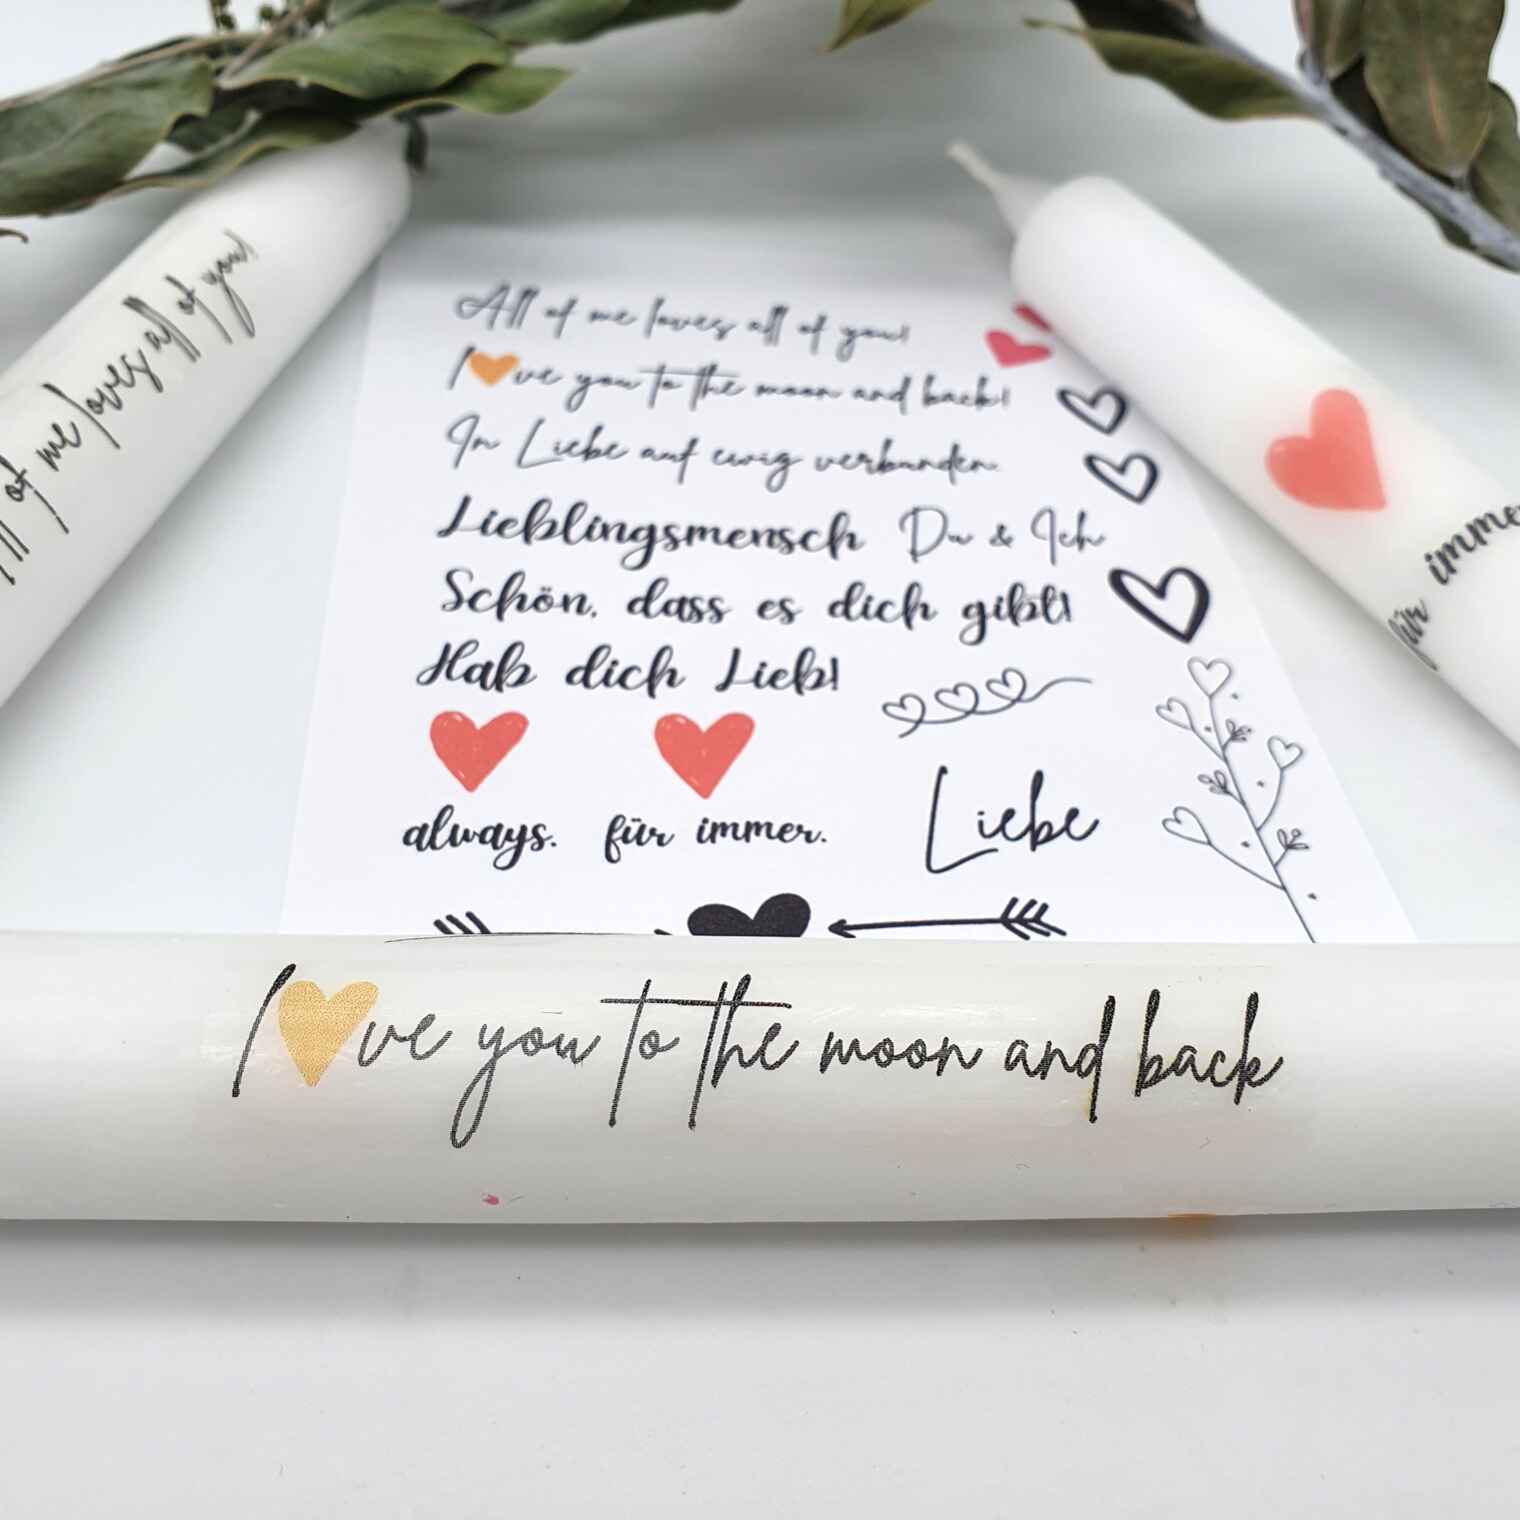 All of me loves all of you!
All of me loves all of you!
I ve you to the moon and back!
In Liebe auf ewig verbunden.
Lieblingsmensch Du & Ich
Schön, dass es dich gibt!
Hab dich Lieb!
always. für immer.
Liebe
für immer
I ve you to the moon and back